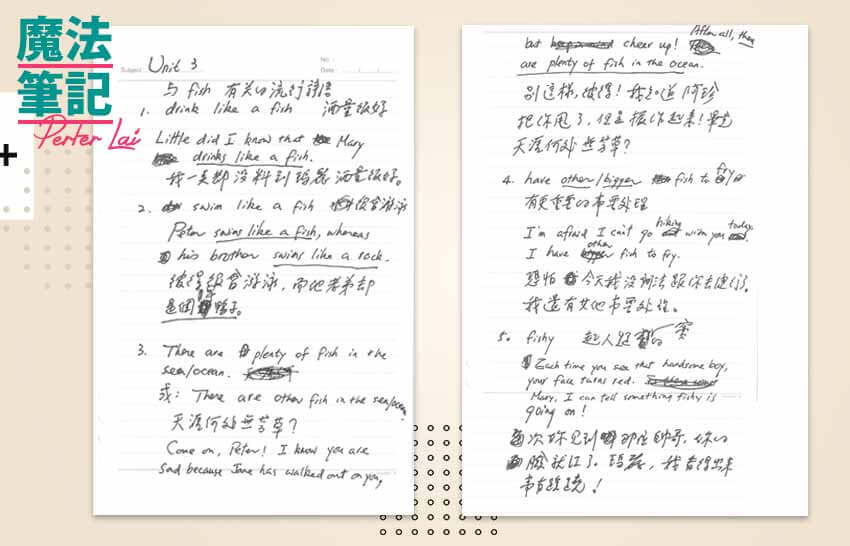 魔法
筆記
Perter Lai
Subject: Unit 3
No.:
Date:
與 fish 有关的流行諺語
1. drink like a fish 酒量很好
Little did I know that Mary
drinks like a fish.
我一点都没料到瑪麗酒量很好。
2. swim like a fish 很會游泳
Peter swims like a fish, whereas
his brother swims like a rock.
彼得很會游泳，而他老弟却
是個旱鴨子。
3. There are plenty of fish in the
sea/ocean.
或： There are other fish in the sea/ocean.
天涯何处無芳草？
Come on, Peter! I know you are
sad because Jane has walked out on you,
but cheer up! After all, there
are plenty of fish in the ocean.
別這樣，彼得！我知道阿珍
把你甩了，但是振作起來！畢竟
天涯何处無芳草？
4. have other/bigger fish to fry
有更重要的事要处理
I'm afraid I can't go hiking with you today.
I have other fish to fry.
恐怕今天我没辦法跟你去健行了。
我還有其他事要处理。
5. fishy 起人疑竇的
Each time you see that handsome boy,
your face turns red.
Mary, I can tell something fishy is
going on!
每次妳見到那位帥哥，你的
臉就红了。瑪麗，我看得出来
事有蹊蹺！